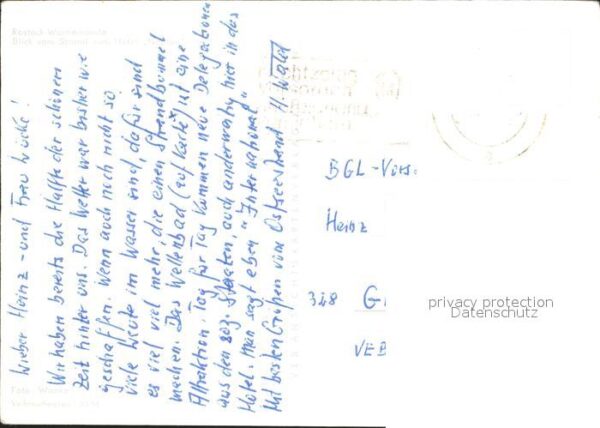 Rostock-Warnemünde
Lieber Heinz - und Frau Lücke!
Wir haben bereits die Hälfte der schönen
Zeit hinter uns. Das Wetter war bisher wie
geschaffen. Wenn auch noch nicht so
viele Leute im Wasser sind, dafür sind
es viel mehr, die einen Strandbummel
machen. Das Wellenbad (auf Karte) ist eine
Attraktion. Tag für Tag kommen neue Delegationen
aus den soz. Staaten, auch anderweitig hier in das
Hotel. Man sagt eben "International"
Mit besten Grüßen vom Ostseestrand H. Wald
BGL-Vors.
Heinz
328 G
VEB
privacy protection
Datenschutz